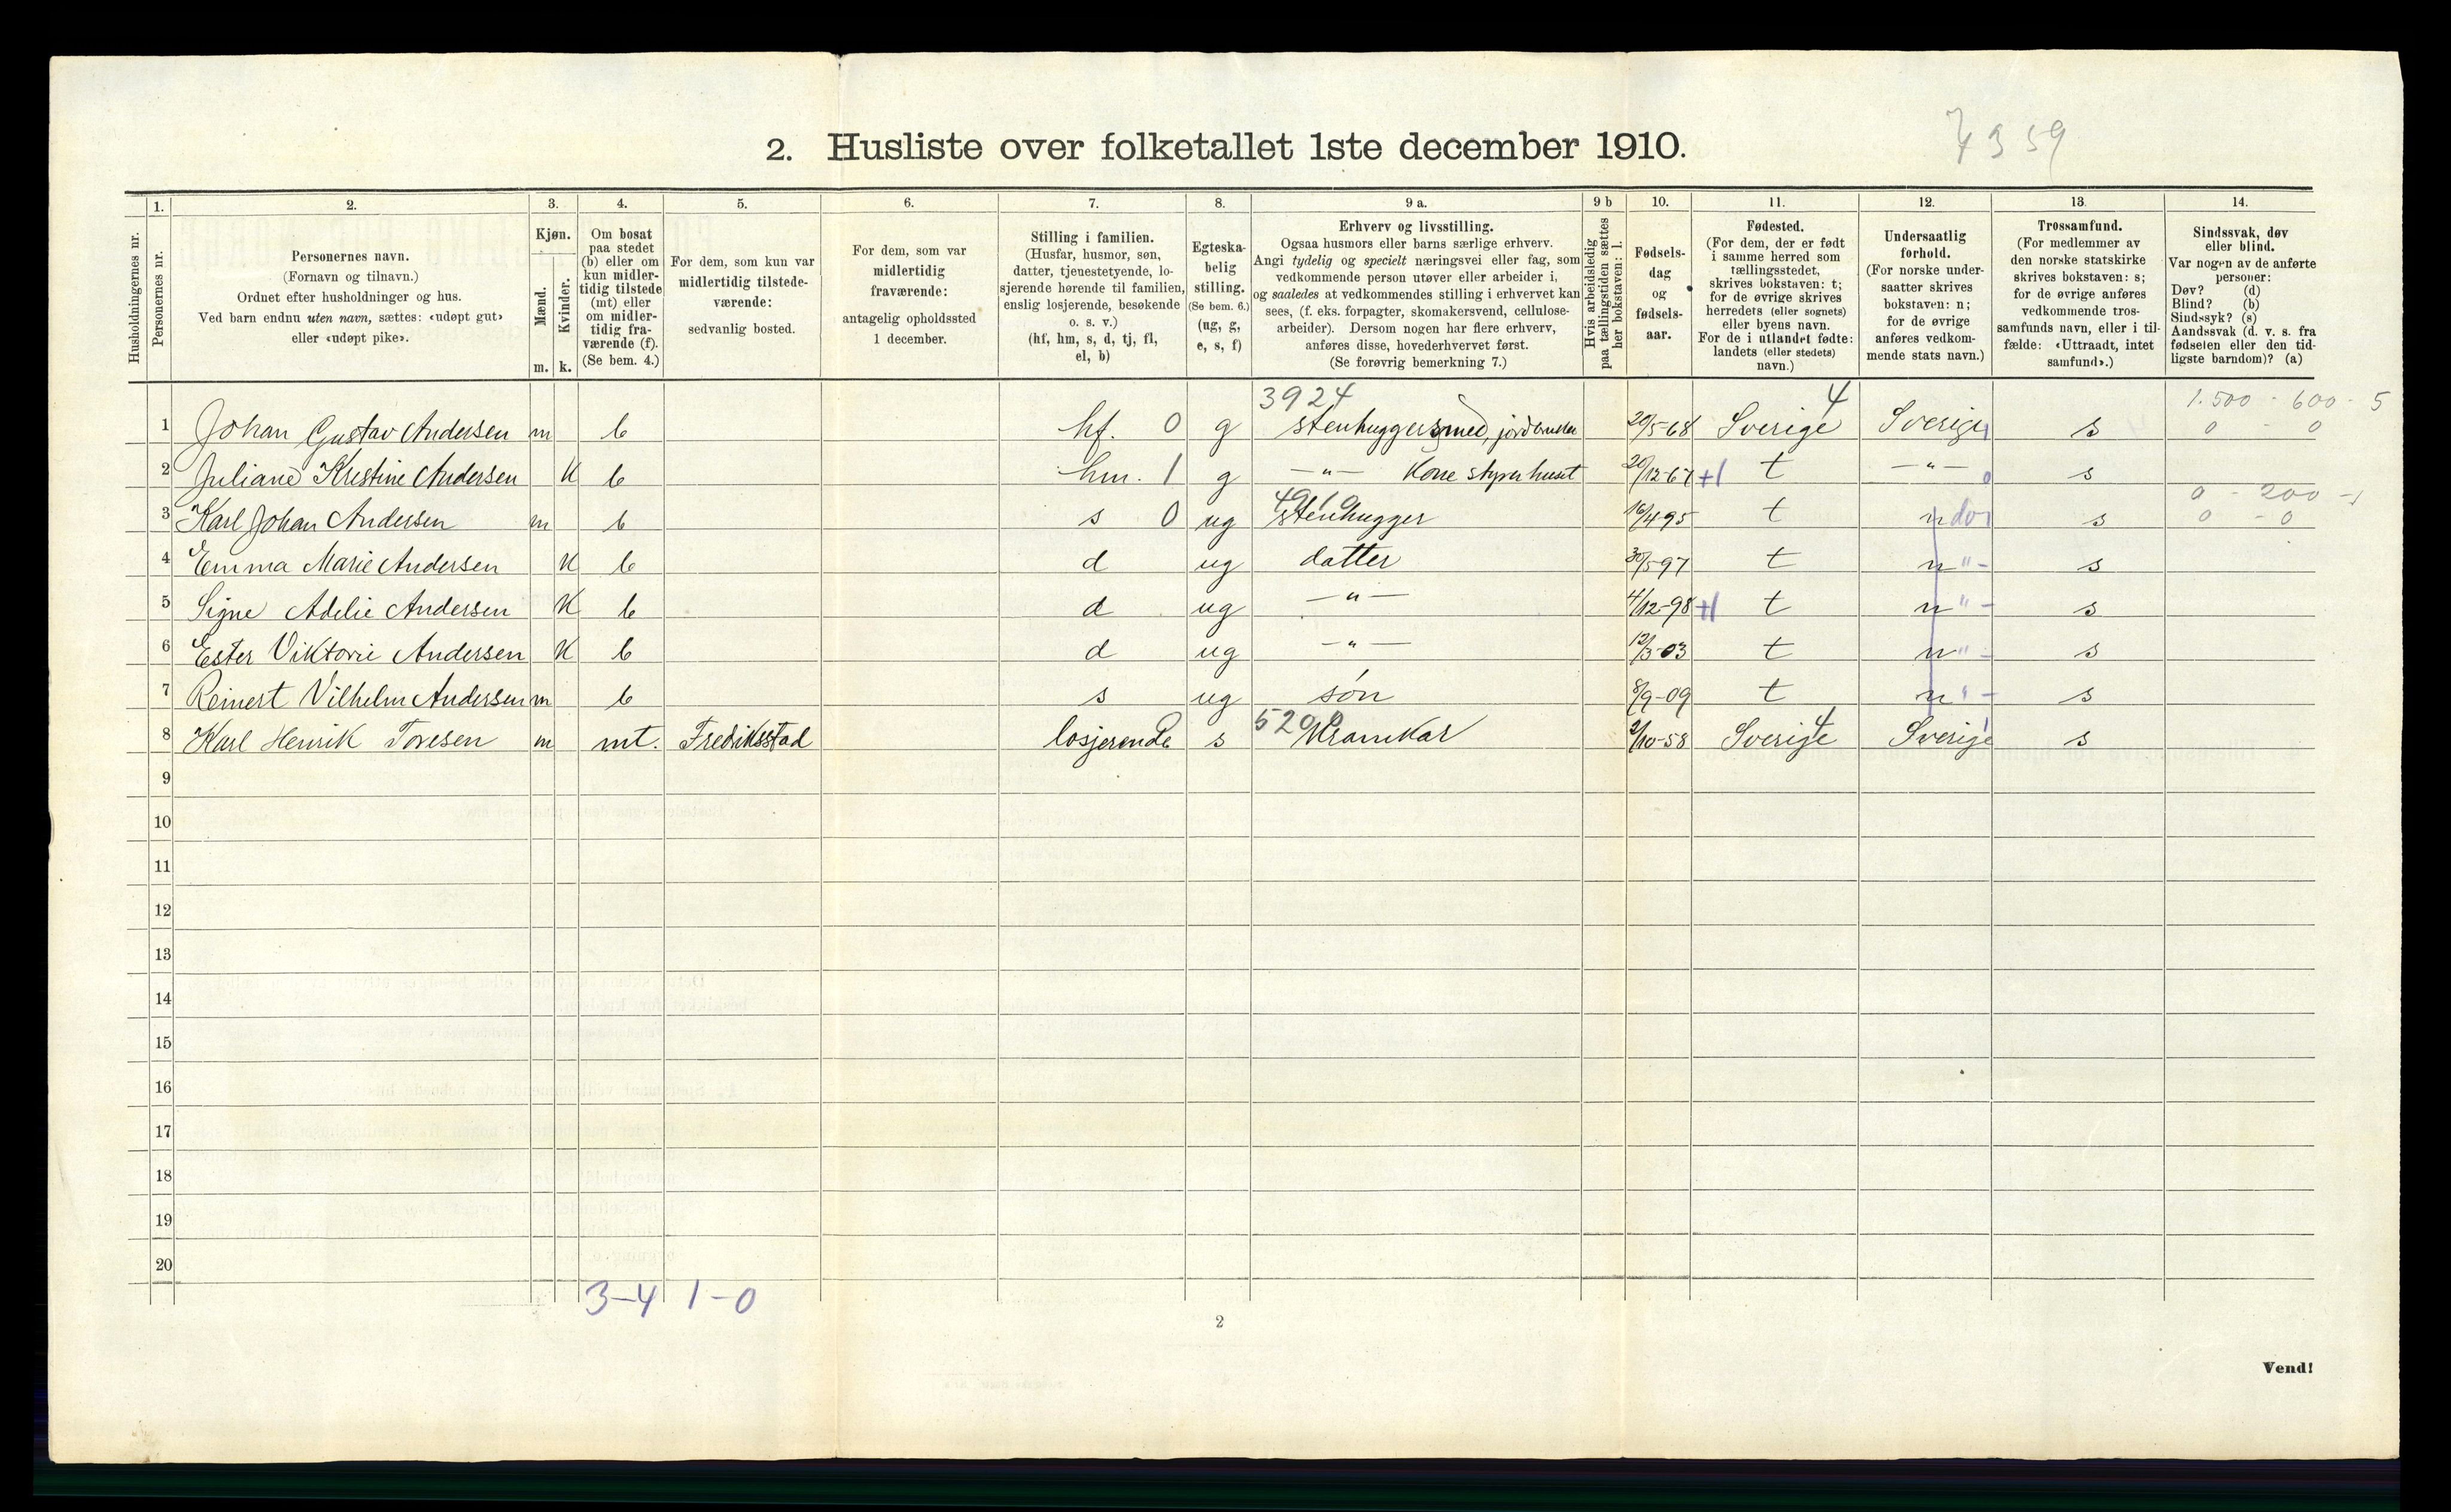 2. Husliste over folketallet 1ste december 1910.
7359
Husholdningernes nr.
1.
Personernes nr.
2.
Personernes navn.
(Fornavn og tilnavn.)
Ordnet efter husholdninger og hus.
Ved barn endnu uten navn, sættes: «udøpt gut»
eller «udøpt pike».
3.
Kjøn.
Mænd.
Kvinder.
m. k.
4.
Om bosat
paa stedet
(b) eller om
kun midler-
tidig tilstede
(mt) eller
om midler-
tidig fra-
værende (f).
(Se bem. 4.)
5.
For dem, som kun var
midlertidig tilstede-
værende:
sedvanlig bosted.
6.
For dem, som var
midlertidig
fraværende:
antagelig opholdssted
1 december.
7.
Stilling i familien.
(Husfar, husmor, søn,
datter, tjenestetyende, lo-
sjerende hørende til familien,
enslig losjerende, besøkende
o. s. v.)
(hf, hm, s, d, tj, fl,
el, b)
8.
Egteska-
belig
stilling.
(Se bem. 6.)
(ug, g,
e, s, f)
9 a.
Erhverv og livsstilling.
Ogsaa husmors eller barns særlige erhverv.
Angi tydelig og specielt næringsvei eller fag, som
vedkommende person utøver eller arbeider i,
og saaledes at vedkommendes stilling i erhvervet kan
sees, (f. eks. forpagter, skomakersvend, cellulose-
arbeider). Dersom nogen har flere erhverv,
anføres disse, hovederhvervet først.
(Se forøvrig bemerkning 7.)
9 b
Hvis arbeidsledig
paa tællingstiden sættes
her bokstaven: l.
10.
Fødsels-
dag
og
fødsels-
aar.
11.
Fødested.
(For dem, der er født
i samme herred som
tællingsstedet,
skrives bokstaven: t;
for de øvrige skrives
herredets (eller sognets)
eller byens navn.
For de i utlandet fødte:
landets (eller stedets)
navn.)
12.
Undersaatlig
forhold.
(For norske under-
saatter skrives
bokstaven: n;
for de øvrige
anføres vedkom-
mende stats navn.)
13.
Trossamfund.
(For medlemmer av
den norske statskirke
skrives bokstaven: s;
for de øvrige anføres
vedkommende tros-
samfunds navn, eller i til-
fælde: «Uttraadt, intet
samfund».)
14.
Sindssvak, døv
eller blind.
Var nogen av de anførte
personer:
Døv? (d)
Blind? (b)
Sindssyk? (s)
Aandssvak (d. v. s. fra
fødselen eller den tid-
ligste barndom)? (a)
3924 4 1.500 - 600 - 5
1 Johan Gustav Andersen m b hf. 0 g stenhuggersmed, jordbruker 20/5-68 Sverige Sverige s 0 - 0
2 Juliane Kristine Andersen K b hm. 1 g -"- Kone styrer huset 20/12-67 +1 t -"- s
4910 0 - 200 -
3 Karl Johan Andersen m b s 0 ug stenhugger 16/4-95 t n do s 0 - 0
4 Emma Marie Andersen K b d ug datter 30/5-97 t n " - s
5 Signe Adelie Andersen K b d ug -"- 4/12-98 +1 t n " - s
6 Ester Viktorie Andersen K b d ug -"- 12/3-03 t n " - s
7 Reinert Vilhelm Andersen m b s ug søn 8/9-09 t n " - s
8 Karl Henrik Toresen m mt. Fredriksstad losjerende s Kramkar 2/10-58 Sverige 4 Sverige s
9
10
11
12
13
14
15
16
17
18
19
20
3-4 1-0
2
Vend!